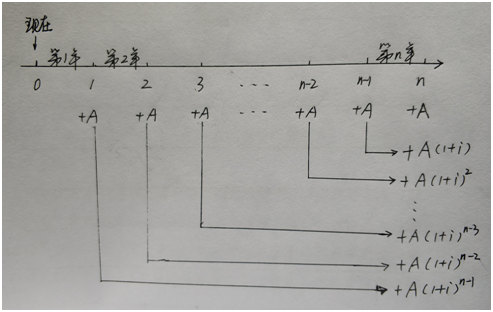 现在
第1年 第2年 第n年
0 1 2 3 ... n-2 n-1 n
+A +A +A ... +A +A +A
+A(1+i)
+A(1+i)²
⋮
+A(1+i)ⁿ⁻³
+A(1+i)ⁿ⁻²
+A(1+i)ⁿ⁻¹